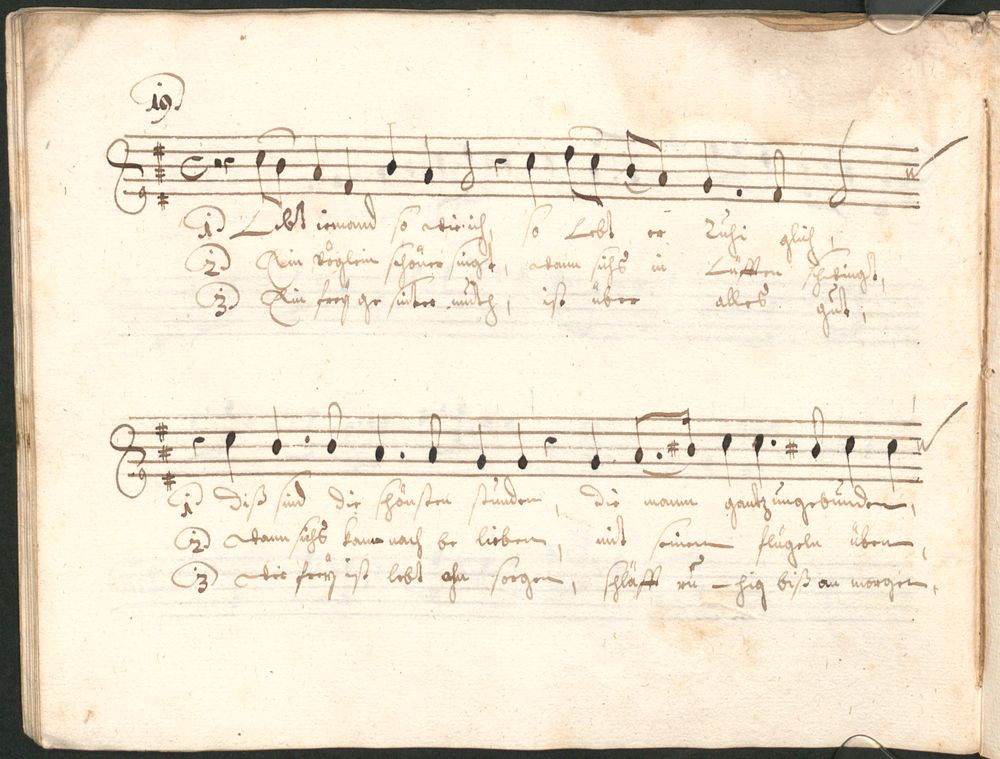 19.
1. Lebt iemand so wie ich, so Lebt er Ruhiglich,
2. Ein vöglein schöner singt, wann sichs in Lüfften schwingt,
3 Ein frey ge muth, ist über alles gut,
1. diß sind die schönsten stunden, die mann gantz ungebunden,
2. wann sichs kann nach be lieben, mit seinen flügeln üben,
3 wer frey ist lebt ohn sorgen, schläfft ru-hig biß an morgen,